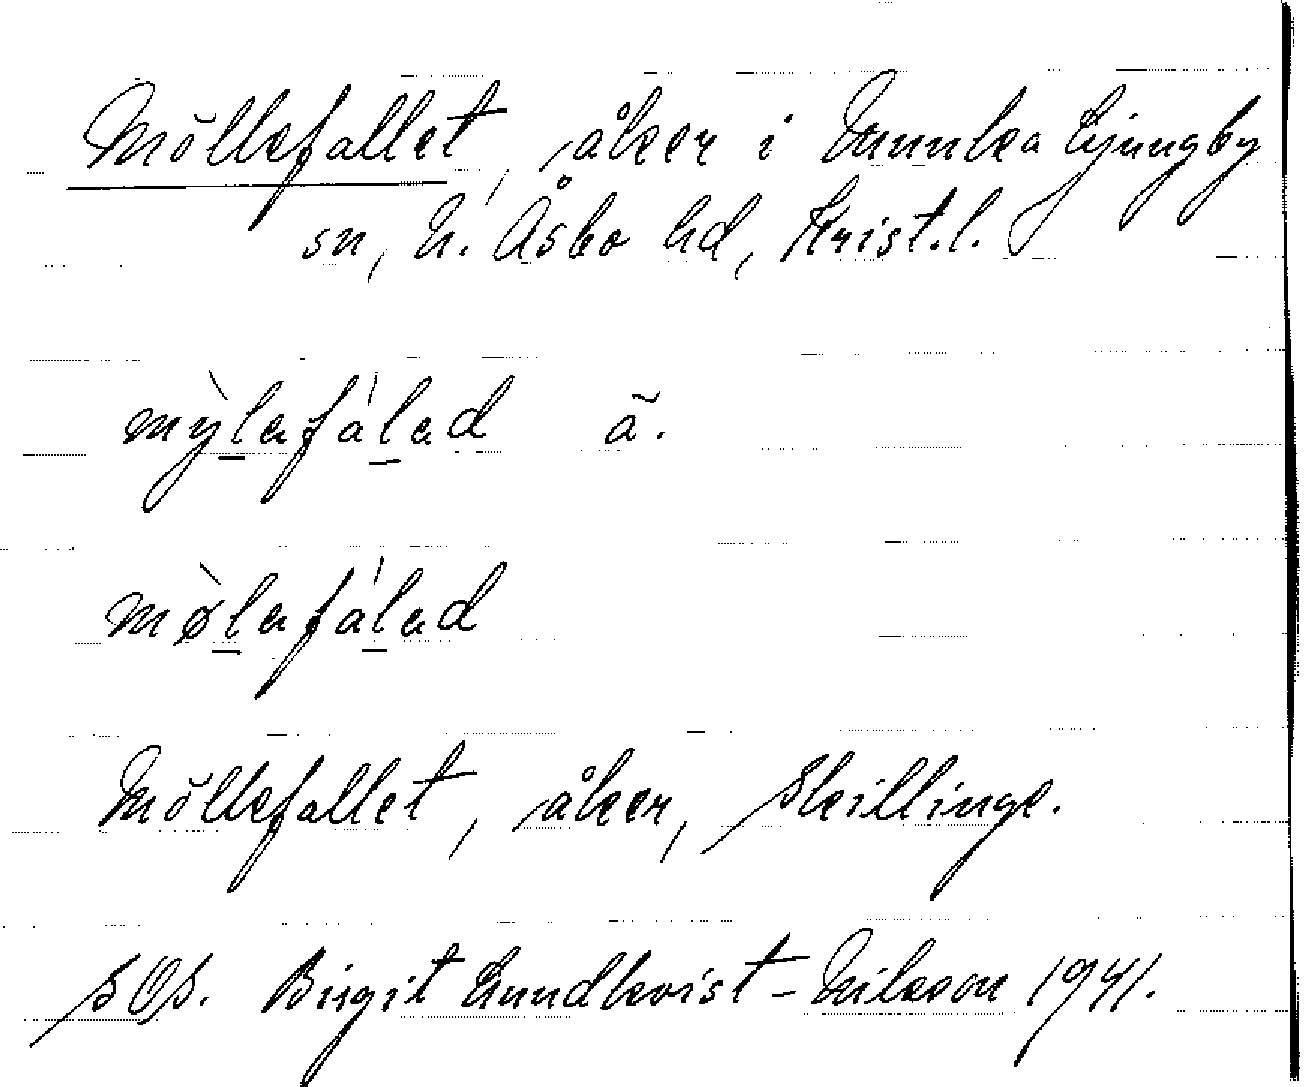 Möllefallet, åker i Munka Ljungby
sn, N. Åsbo hd, Krist.l.
mỳlafáląd ã.
mø̀lafálad
Möllefallet, åker, Skillinge.
SOS. Birgit Lundkvist-Nilsson 1941.